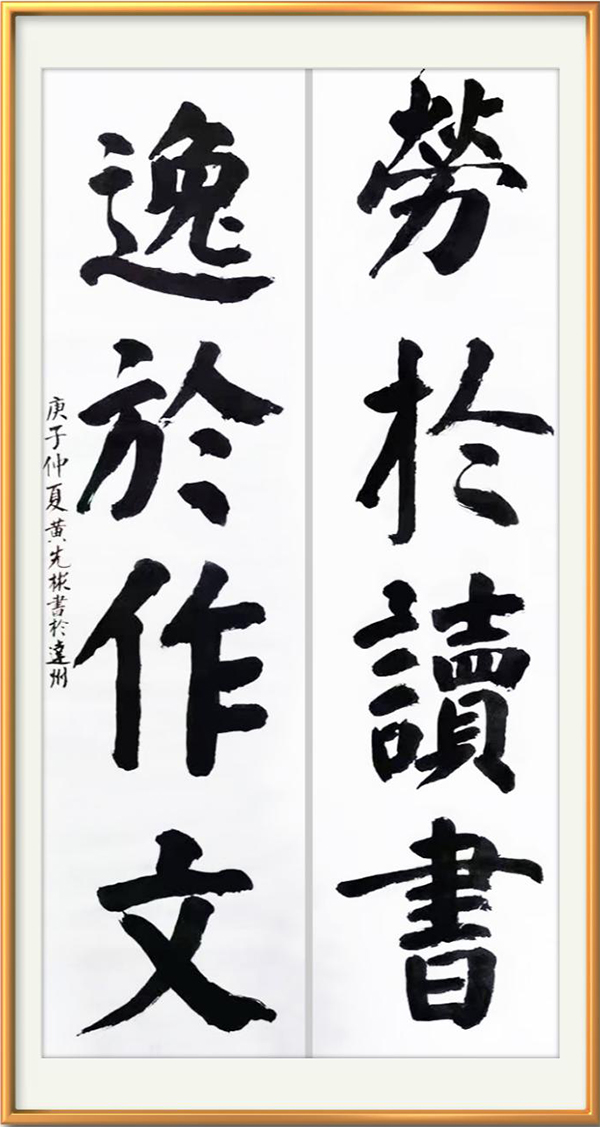 勞於讀書
逸於作文
庚子仲夏黄先彬書於達州